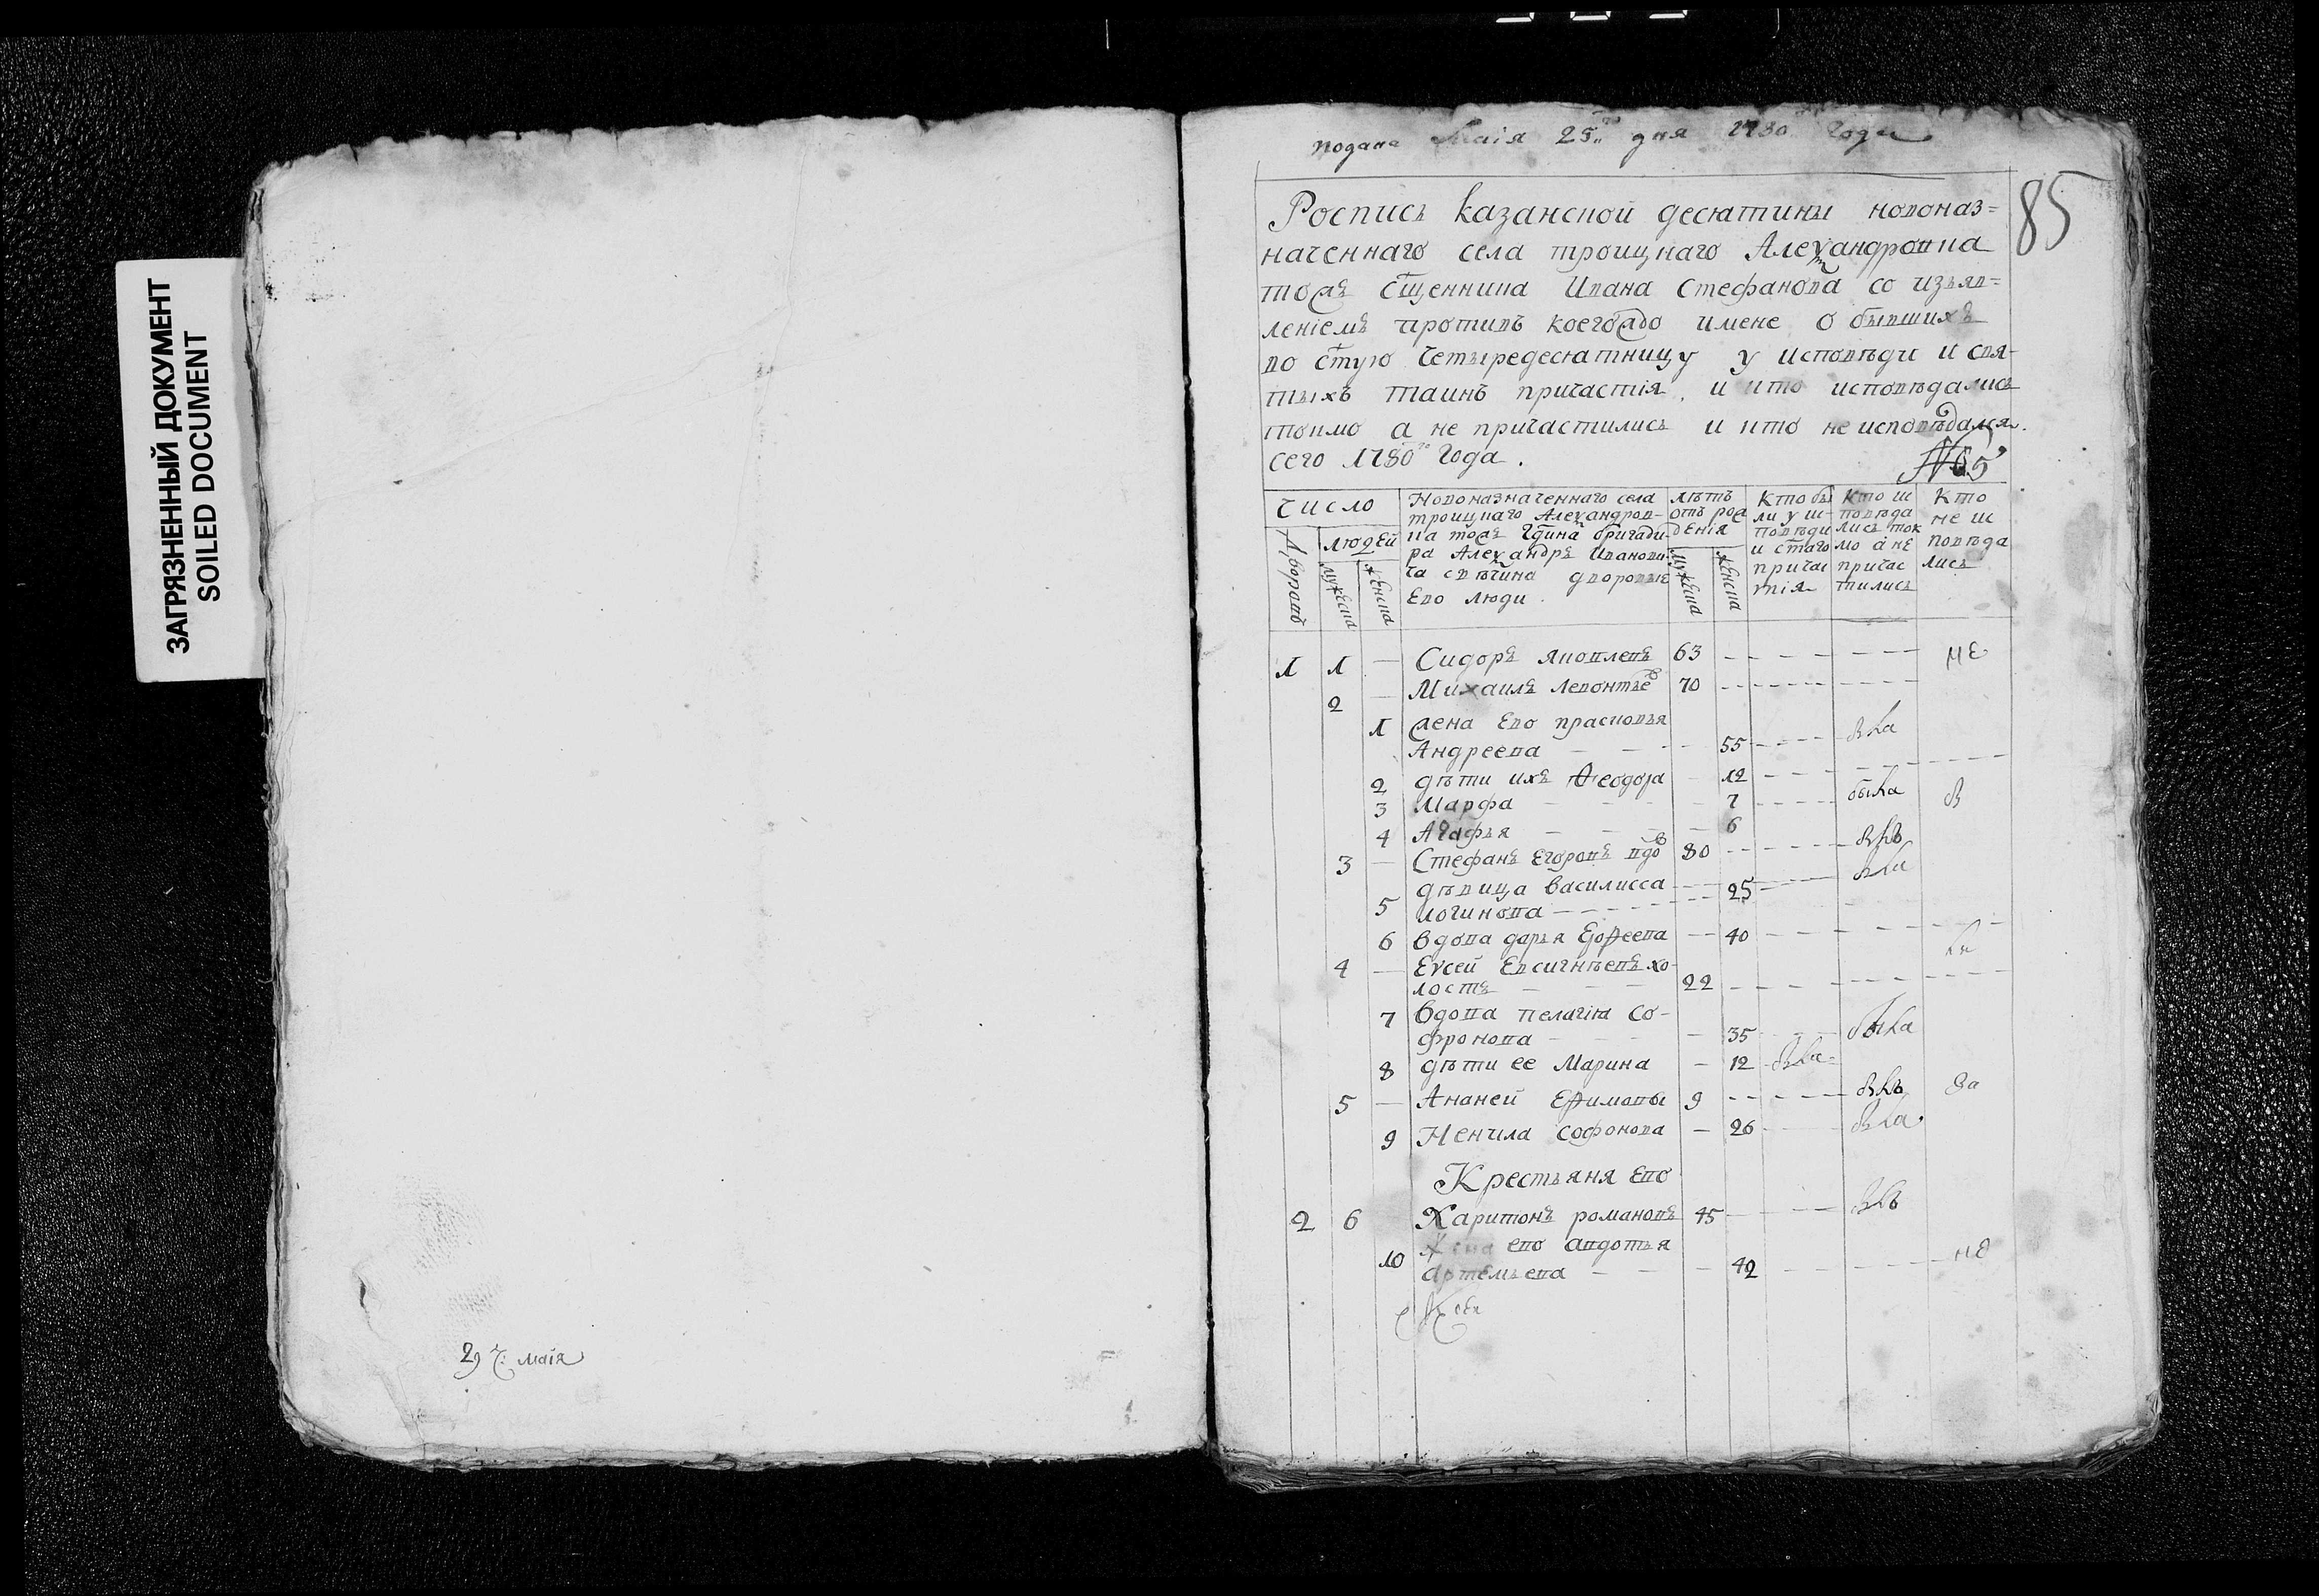 ЗАГРЯЗНЕННЫЙ ДОКУМЕНТ
SOILED DOCUMENT
29 ч: маія
подана Маія 25го дня 1780 года
85
Роспись казанской десятины новоназ=
наченнаго села троицкаго Алеѯандровка
тожъ сщенника Ивана Стефанова со изъяв=
леніемъ противъ коегождо имене о бывшихъ
во стую четыредесятницу у исповѣди и свя-
тыхъ таинъ причастія. и кто исповѣдались
токмо а не причастились и кто не исповѣдался.
сего 1780го года.
№65
Число
Дворовъ
людей
мужеска
женска
Новоназначеннаго села
троицкаго Алеѯандров-
ка тожъ Гдина бригади-
ра Алеѯандра Иванови-
ча свѣчина дворовые
Ево люди.
лѣтъ
отъ рож
денія
мужеска
женска
Кто бы
ли у ис
повѣди
и стаго
причас
тія
Кто ис
повѣда
лись ток
мо а не
причас
тились
Кто
не ис
повѣда
лись
1 1 — Сидоръ яковлевъ 63 не
2 — Михаилъ Левонтьевъ 70
1 жена Ево прасковья
Андреева 55 была
2 дѣти ихъ Ѳеодора 12
3 Марфа 7 была
4 Агафья 6
3 — Стефанъ Егоровъ вдовъ 80 былъ
дѣвица василисса 25 была
5 логинова
6 вдова дарья Ерофеева 40
4 — Еѵсей Евсигнѣевъ хо-
лостъ 22
7 вдова пелагія Со-
фронова 35 была
8 дѣти ее Марина 12 была
5 — Ананей Ефимовы 9 былъ
9 Ненила софонова 26 была
Крестьяня ево
2 6 Харитонъ романовъ 45 былъ
10 Жена ево авдотья
Артемьева 42 не